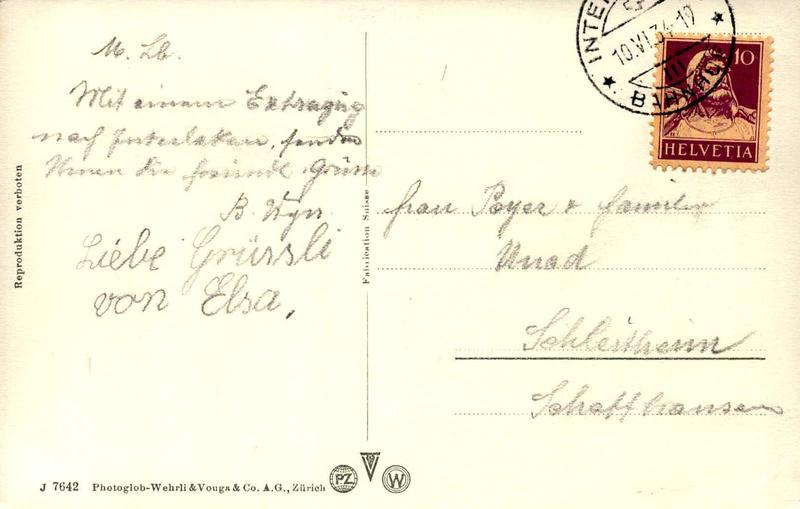 M. Lb.
Mit einem Extrazug
nach Interlaken, senden
Ihnen die freundl. Grüsse
B.
Liebe Grüssli
von Elsa,
Frau Peyer & Familie
Schleitheim
Schaffhausen
10.VI.34-19
III
BAHNHOF
10
HELVETIA
Reproduktion verboten
Fabrication Suisse
J 7642 Photoglob-Wehrli & Vouga & Co. A.G., Zürich
PZ
W